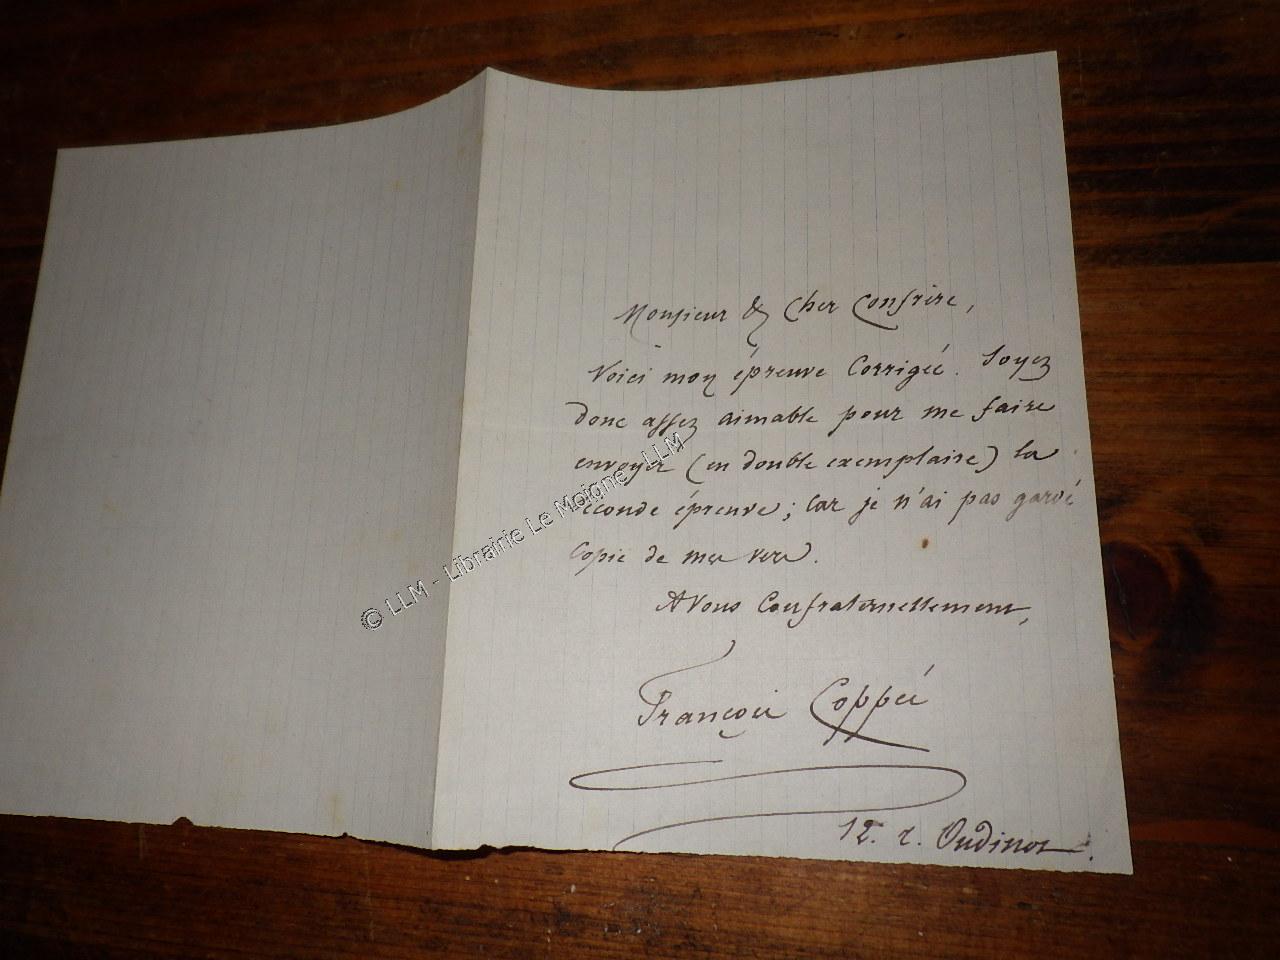 Monsieur & Cher Confrère,
Voici mon épreuve corrigée. Soyez
donc assez aimable pour me faire
envoyer (en double exemplaire) la
seconde épreuve ; car je n'ai pas gardé
copie de mes vers.
A vous confraternellement,
François Coppée
12. r. Oudinot.
© LLM - Librairie Le Moigne - LLM